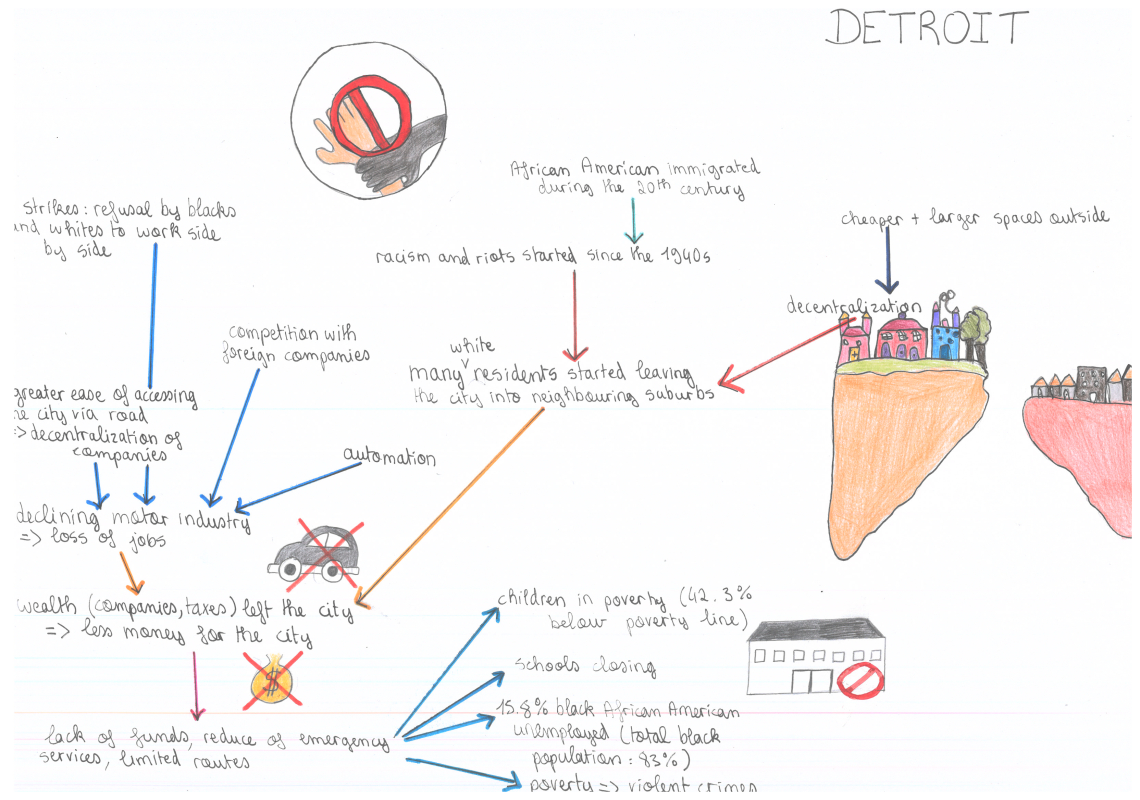 DETROIT
African American immigrated
during the 20th century
strikes: refusal by blacks
and whites to work side
by side
cheaper + larger spaces outside
racism and riots started since the 1940s
decentralization
competition with
foreign companies
white
many residents started leaving
the city into neighbouring suburbs
greater ease of accessing
the city via road
=> decentralization of
companies
automation
declining motor industry
=> loss of jobs
wealth (companies, taxes) left the city
=> less money for the city
$
children in poverty (42.3%
below poverty line)
schools closing
15.8% black African American
unemployed (total black
population: 83%)
poverty => violent crimes
lack of funds, reduce of emergency
services, limited routes